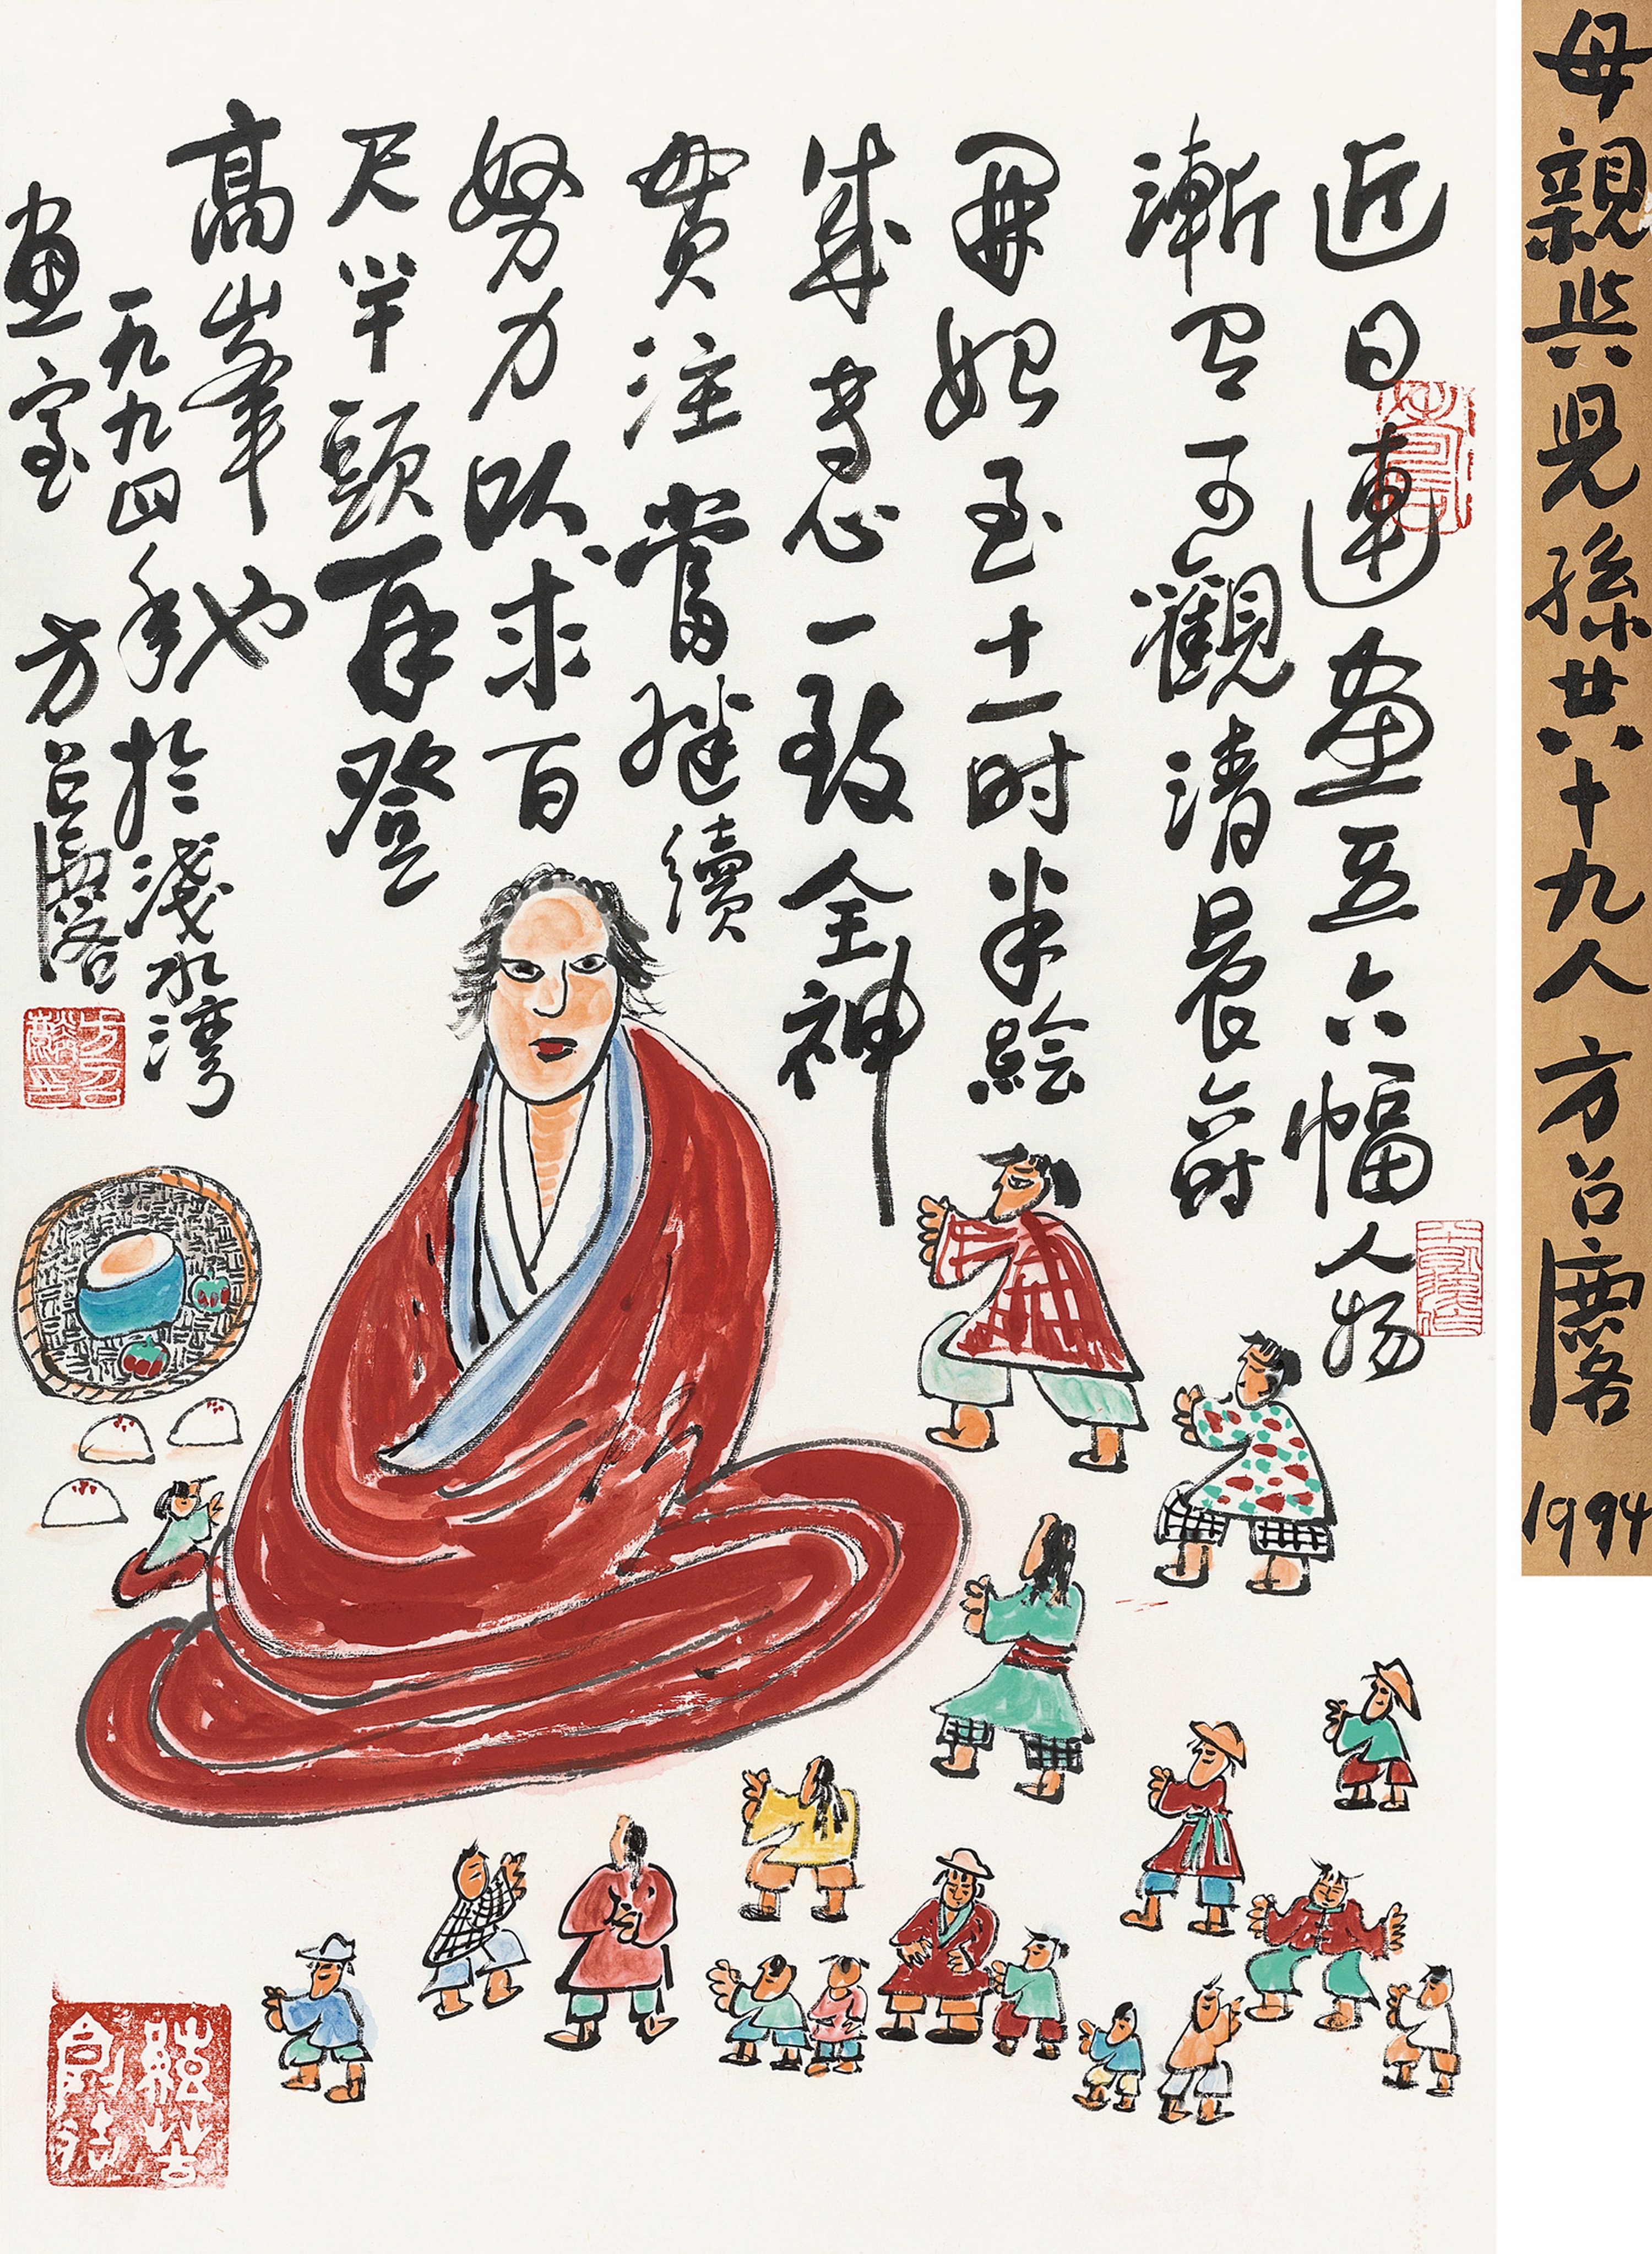 母親與兒孫共十九人 方召麐 1994
近日連畫五六幅人物
漸可觀清晨六时
開始至十一时半絵
成專心一致全神
貫注當継續
努力以求百
尺竿頭再登
高峯也
一九九四年於淺水灣
畫室 方召麐